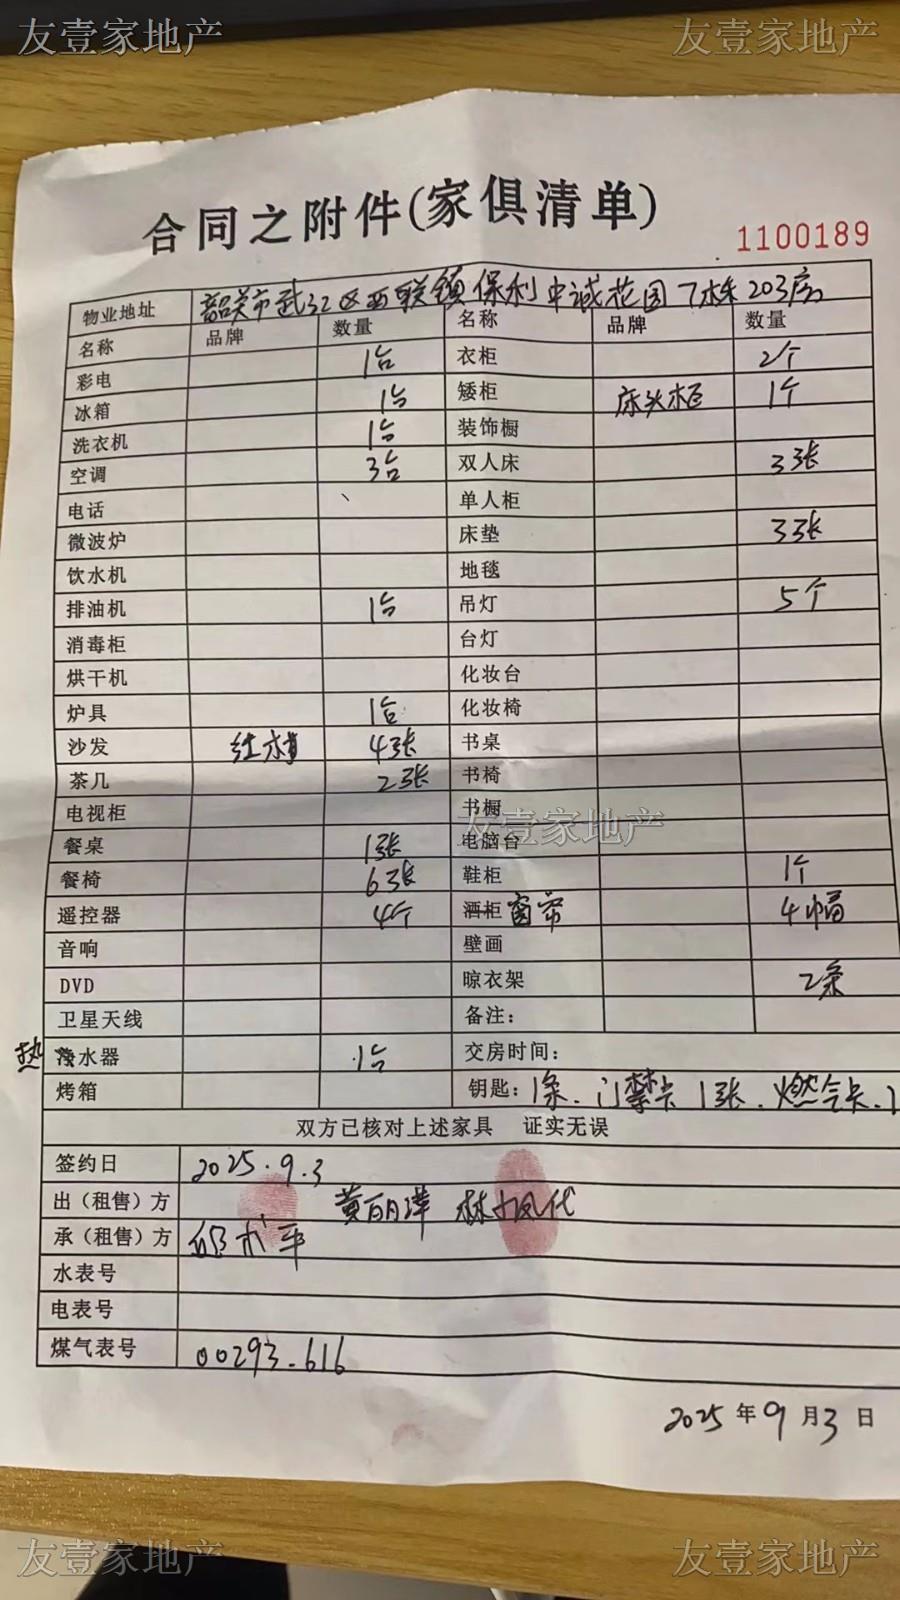 友壹家地产 友壹家地产
合同之附件(家俱清单)
1100189
物业地址 韶关市武江区西联镇保利中诚花园7栋203房
名称 品牌 数量 名称 品牌 数量
彩电 1台 衣柜 2个
冰箱 1台 矮柜 床头柜 1个
洗衣机 1台 装饰橱
空调 3台 双人床 3张
电话 单人柜
微波炉 床垫 3张
饮水机 地毯
排油机 1台 吊灯 5个
消毒柜 台灯
烘干机 化妆台
炉具 1台 化妆椅
沙发 红木 4张 书桌
茶几 2张 书椅
电视柜 书橱
友壹家地产
餐桌 1张 电脑台
餐椅 6张 鞋柜 1个
遥控器 4个 酒柜 窗帘 4幅
音响 壁画
DVD 晾衣架 2条
卫星天线 备注:
热水器 1台 交房时间:
烤箱 钥匙: 1条、门禁卡1张、燃气卡、1
双方已核对上述家具 证实无误
签约日 2025.9.3
出(租售)方
承(租售)方
水表号
电表号
煤气表号 00293.616
2025年9月3日
友壹家地产 友壹家地产